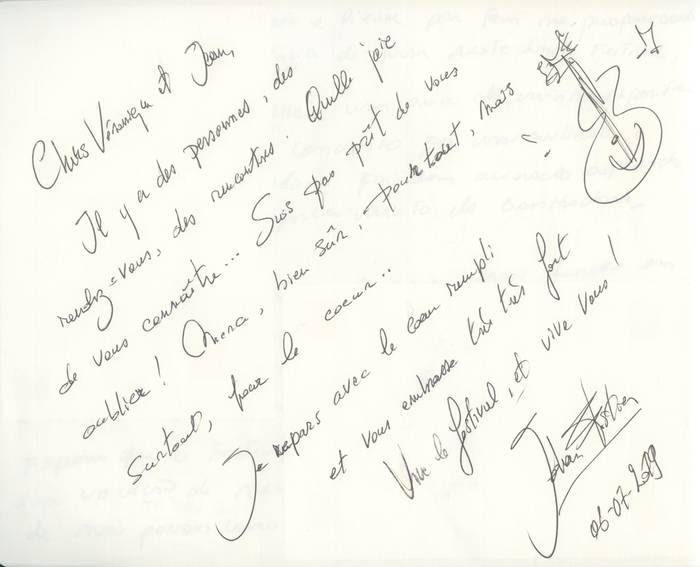 Chers Véronique et Jean,
Il y a des personnes, des
rendez-vous, des rencontres. Quelle joie
de vous connaître... Suis pas prêt de vous
oublier ! Merci, bien sûr, pour tout, mais
surtout, pour le coeur..
Je repars avec le coeur rempli
et vous embrasse très très fort
Vive le festival, et vive vous !